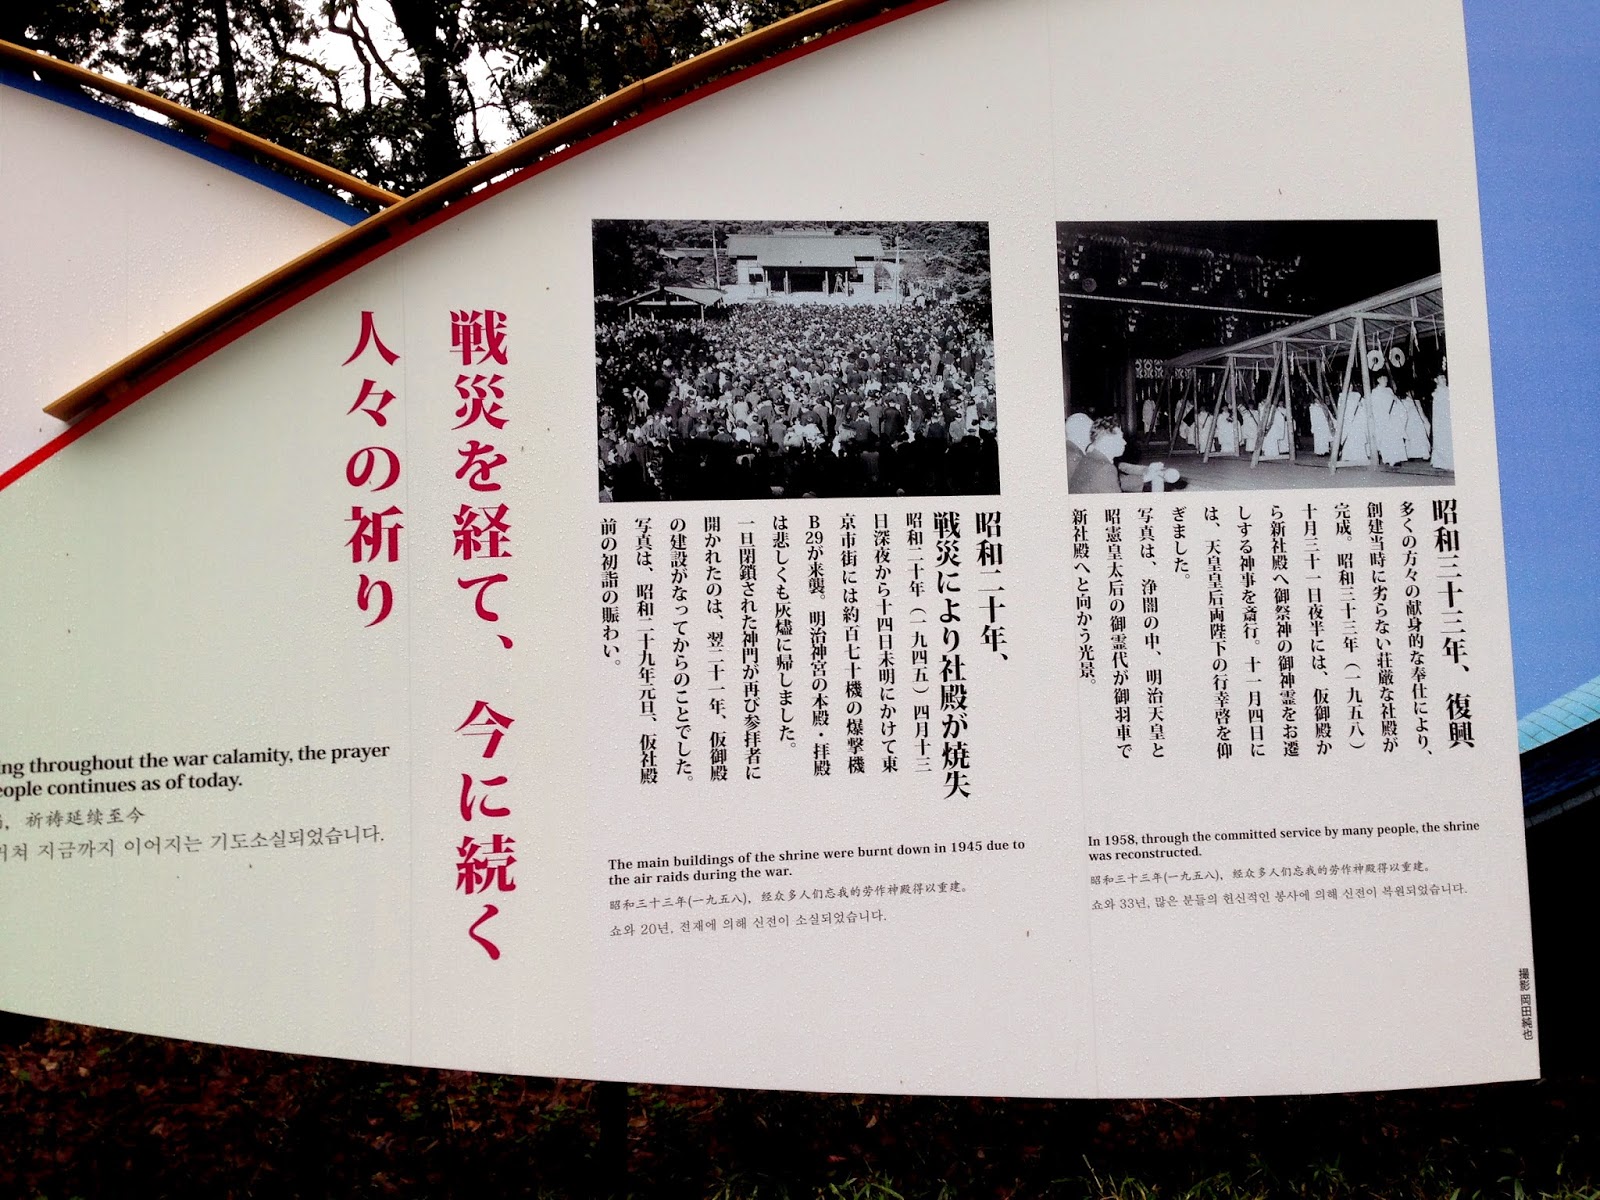 戦災を経て、今に続く
人々の祈り
ing throughout the war calamity, the prayer
eople continues as of today.
，祈祷延续至今
거쳐 지금까지 이어지는 기도소실되었습니다.
昭和二十年、
戦災により社殿が焼失
昭和二十年（一九四五）四月十三
日深夜から十四日未明にかけて東
京市街には約百七十機の爆撃機
B29が来襲。明治神宮の本殿・拝殿
は悲しくも灰燼に帰しました。
一旦閉鎖された神門が再び参拝者に
開かれたのは、翌二十一年、仮御殿
の建設がなってからのことでした。
写真は、昭和二十九年元旦、仮社殿
前の初詣の賑わい。
The main buildings of the shrine were burnt down in 1945 due to
the air raids during the war.
昭和三十三年(一九五八)，经众多人们忘我的劳作神殿得以重建。
쇼와 20년, 전재에 의해 신전이 소실되었습니다.
昭和三十三年、復興
多くの方々の献身的な奉仕により、
創建当時に劣らない荘厳な社殿が
完成。昭和三十三年（一九五八）
十月三十一日夜半には、仮御殿か
ら新社殿へ御祭神の御神霊をお遷
しする神事を斎行。十一月四日に
は、天皇皇后両陛下の行幸啓を仰
ぎました。
写真は、浄闇の中、明治天皇と
昭憲皇太后の御霊代が御羽車で
新社殿へと向かう光景。
In 1958, through the committed service by many people, the shrine
was reconstructed.
昭和三十三年(一九五八)，经众多人们忘我的劳作神殿得以重建。
쇼와 33년, 많은 분들의 헌신적인 봉사에 의해 신전이 복원되었습니다.
撮影 岡田純也